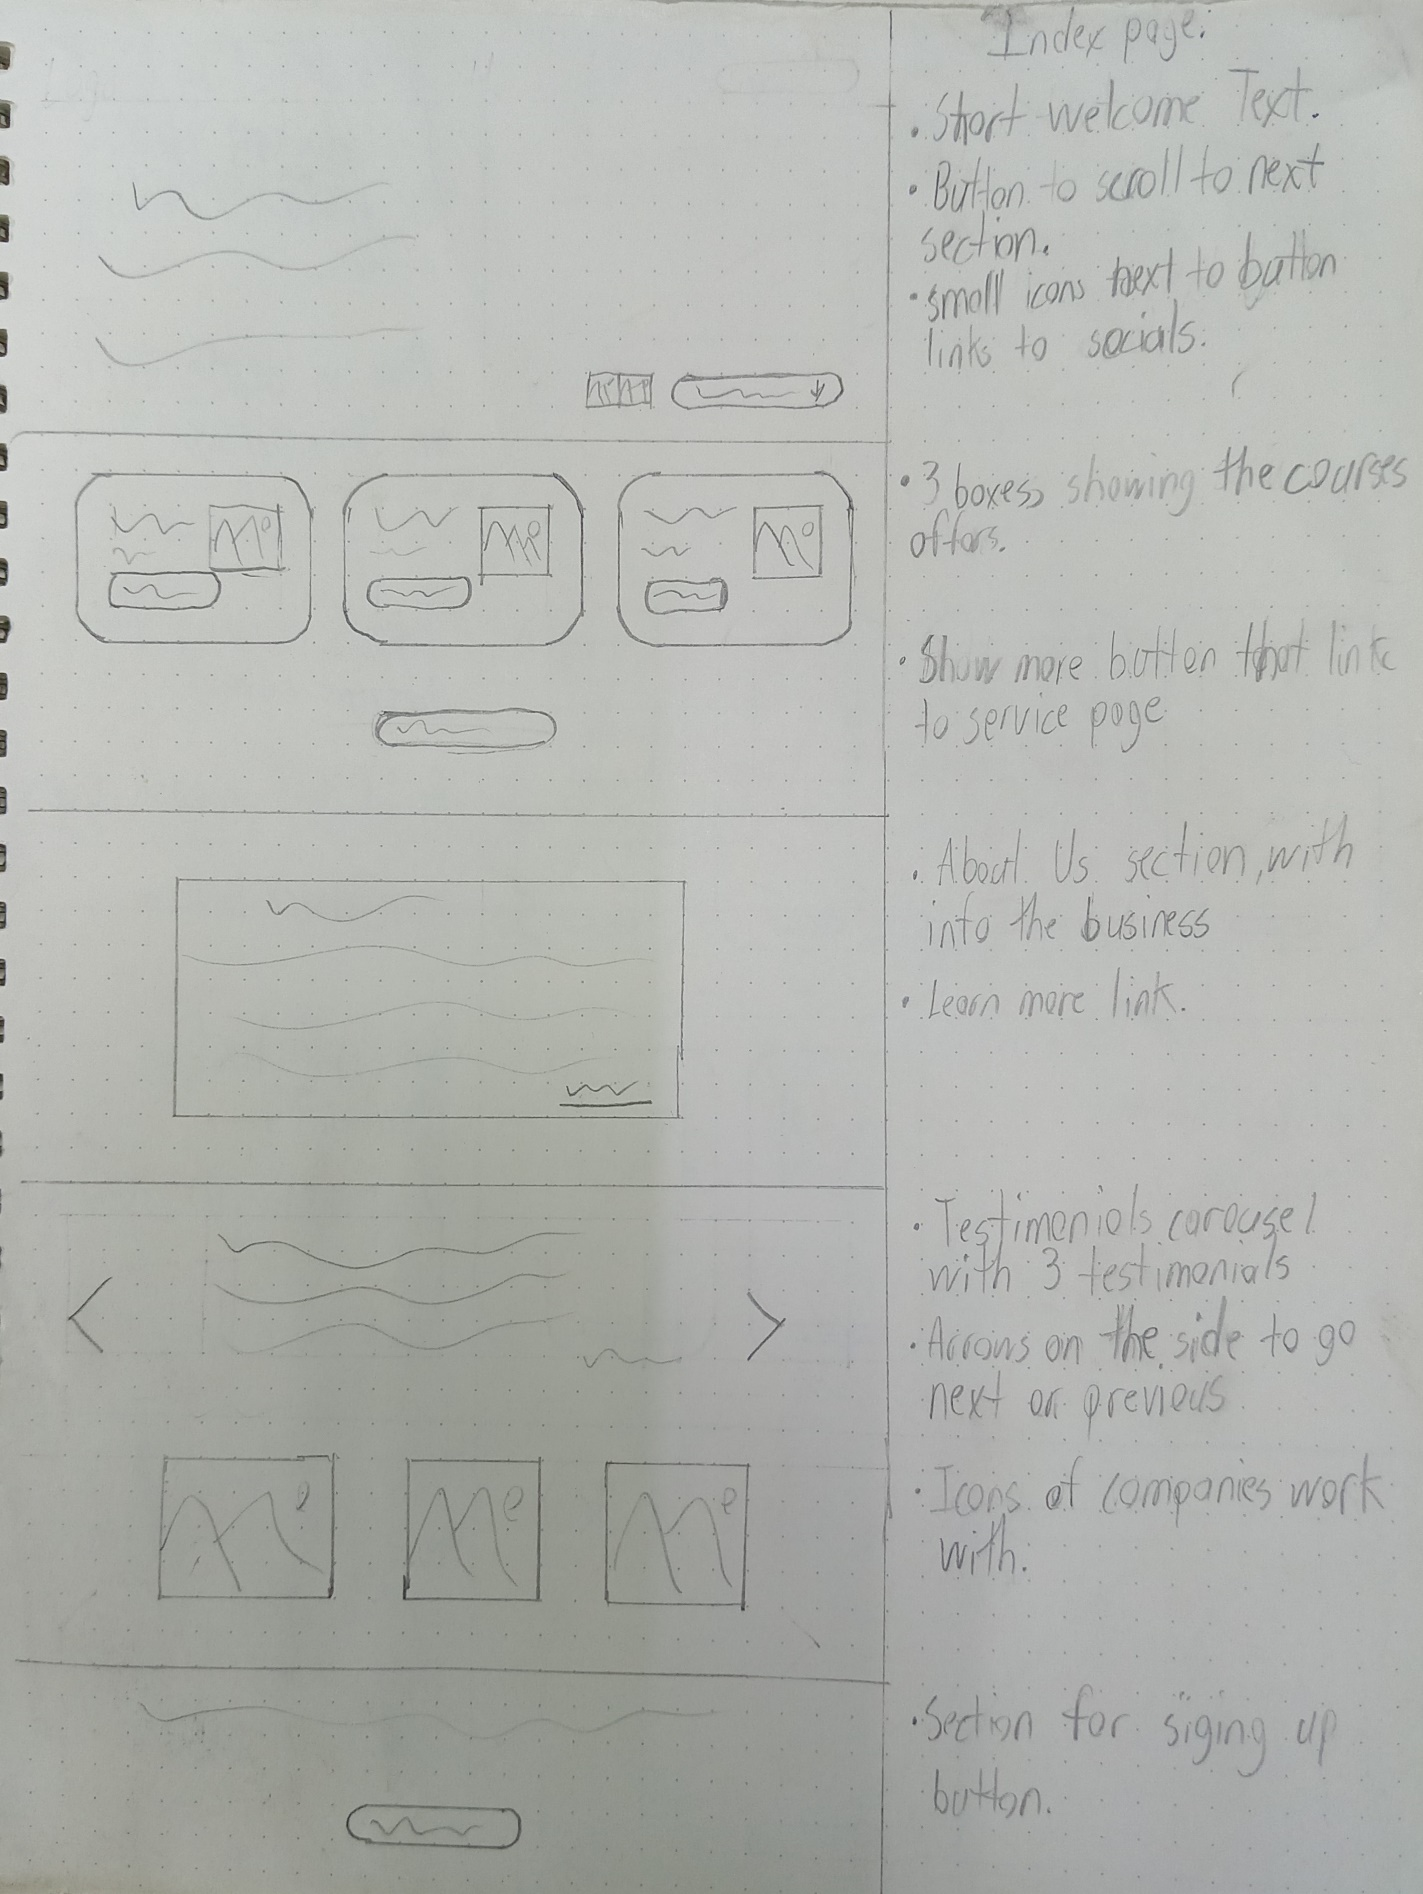 Index page:
• Short welcome Text.
• Button to scroll to next
section.
• small icons next to button
links to socials.
• 3 boxes showing the courses
offers.
• Show more button that link
to service page
• About Us section, with
info the business
• Learn more link.
• Testimonials carousel
with 3 testimonials
• Arrows on the side to go
next or previous
• Icons of companies work
with.
• Section for siging up
button.